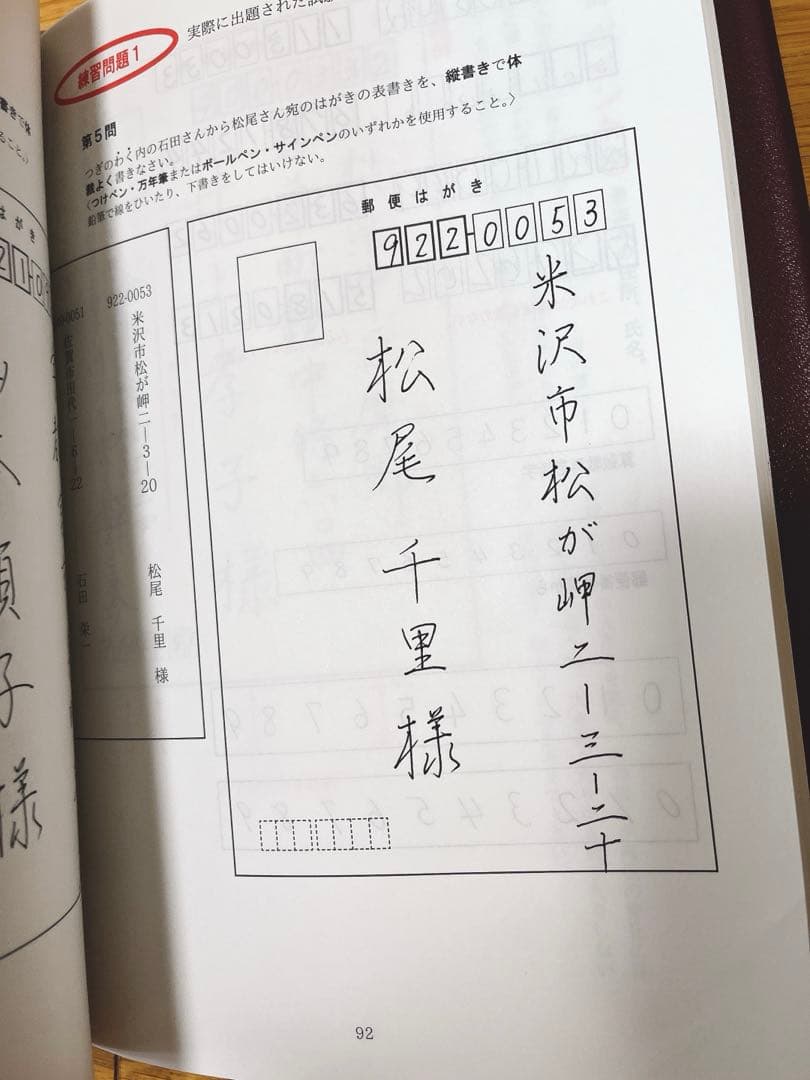 練習問題1
実際に出題された試
第5問
つぎのわく内の石田さんから松尾さん宛のはがきの表書きを、縦書きで体
裁よく書きなさい。
〈つけペン・万年筆またはボールペン・サインペンのいずれかを使用すること。〉
鉛筆で線をひいたり、下書きをしてはいけない。
郵便はがき
922-0053
米沢市松が岬二ー三ー二十
松尾 千里 様
922-0053
米沢市松が岬二―3―20
松尾 千里 様
石田
22
書きで体
ること。〉
はがき
子様
92